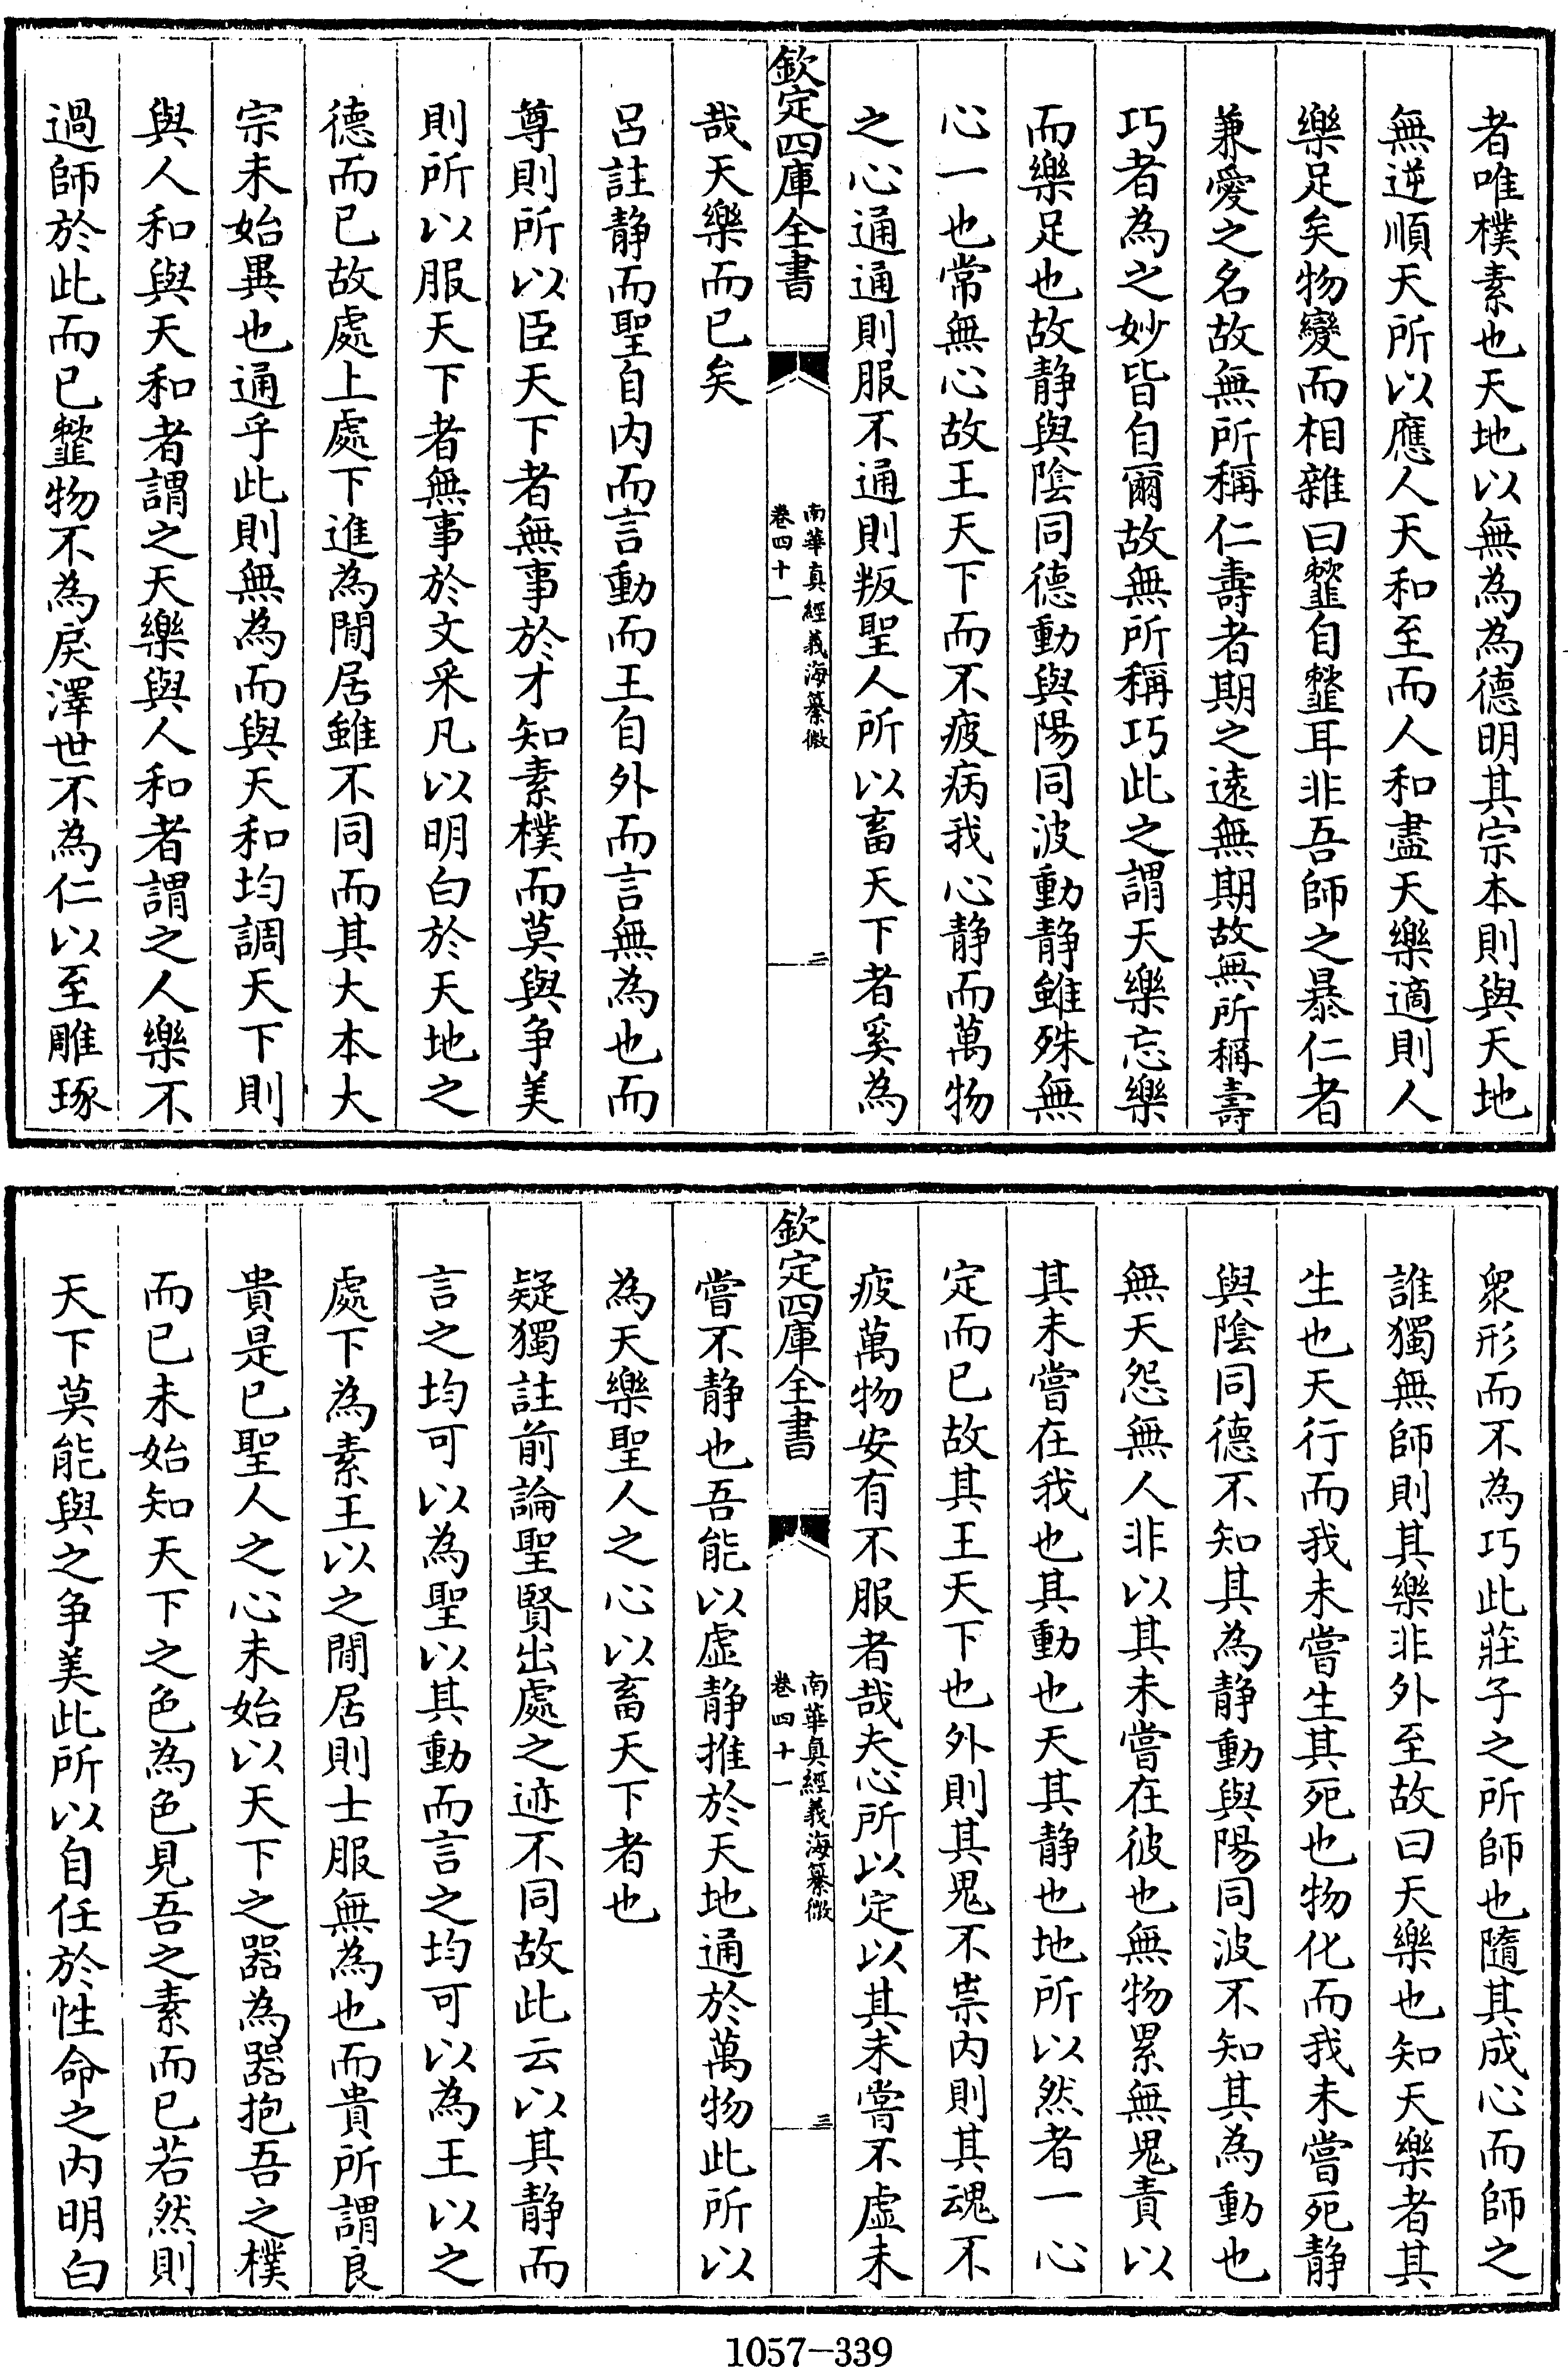 者唯樸素也天地以無為為德明其宗本則與天地
無逆順天所以應人天和至而人和盡天樂適則人
樂足矣物變而相雜曰䪠自䪠耳非吾師之暴仁者
兼愛之名故無所稱仁壽者期之遠無期故無所稱壽
巧者為之妙皆自爾故無所稱巧此之謂天樂忘樂
而樂足也故静與陰同德動與陽同波動静雖殊無
心一也常無心故王天下而不疲病我心静而萬物
之心通通則服不通則叛聖人所以畜天下者奚為
欽定四庫全書
南華真經義海纂微
卷四十一
二
哉天樂而已矣
呂註静而聖自内而言動而王自外而言無為也而
尊則所以臣天下者無事於才知素樸而莫與争美
則所以服天下者無事於文采凡以明白於天地之
德而已故處上處下進為閒居雖不同而其大本大
宗未始異也通乎此則無為而與天和均調天下則
與人和與天和者謂之天樂與人和者謂之人樂不
過師於此而已䪠物不為戾澤世不為仁以至雕琢
衆形而不為巧此莊子之所師也隨其成心而師之
誰獨無師則其樂非外至故曰天樂也知天樂者其
生也天行而我未嘗生其死也物化而我未嘗死静
與陰同德不知其為静動與陽同波不知其為動也
無天怨無人非以其未嘗在彼也無物累無鬼責以
其未嘗在我也其動也天其静也地所以然者一心
定而已故其王天下也外則其鬼不祟内則其魂不
疲萬物安有不服者哉夫心所以定以其未嘗不虛未
欽定四庫全書
南華真經義海纂微
卷四十一
三
嘗不静也吾能以虛静推於天地通於萬物此所以
為天樂聖人之心以畜天下者也
疑獨註前論聖賢出處之迹不同故此云以其静而
言之均可以為聖以其動而言之均可以為王以之
處下為素王以之閒居則士服無為也而貴所謂良
貴是已聖人之心未始以天下之器為器抱吾之樸
而已未始知天下之色為色見吾之素而已若然則
天下莫能與之争美此所以自任於性命之内明白
1057-339